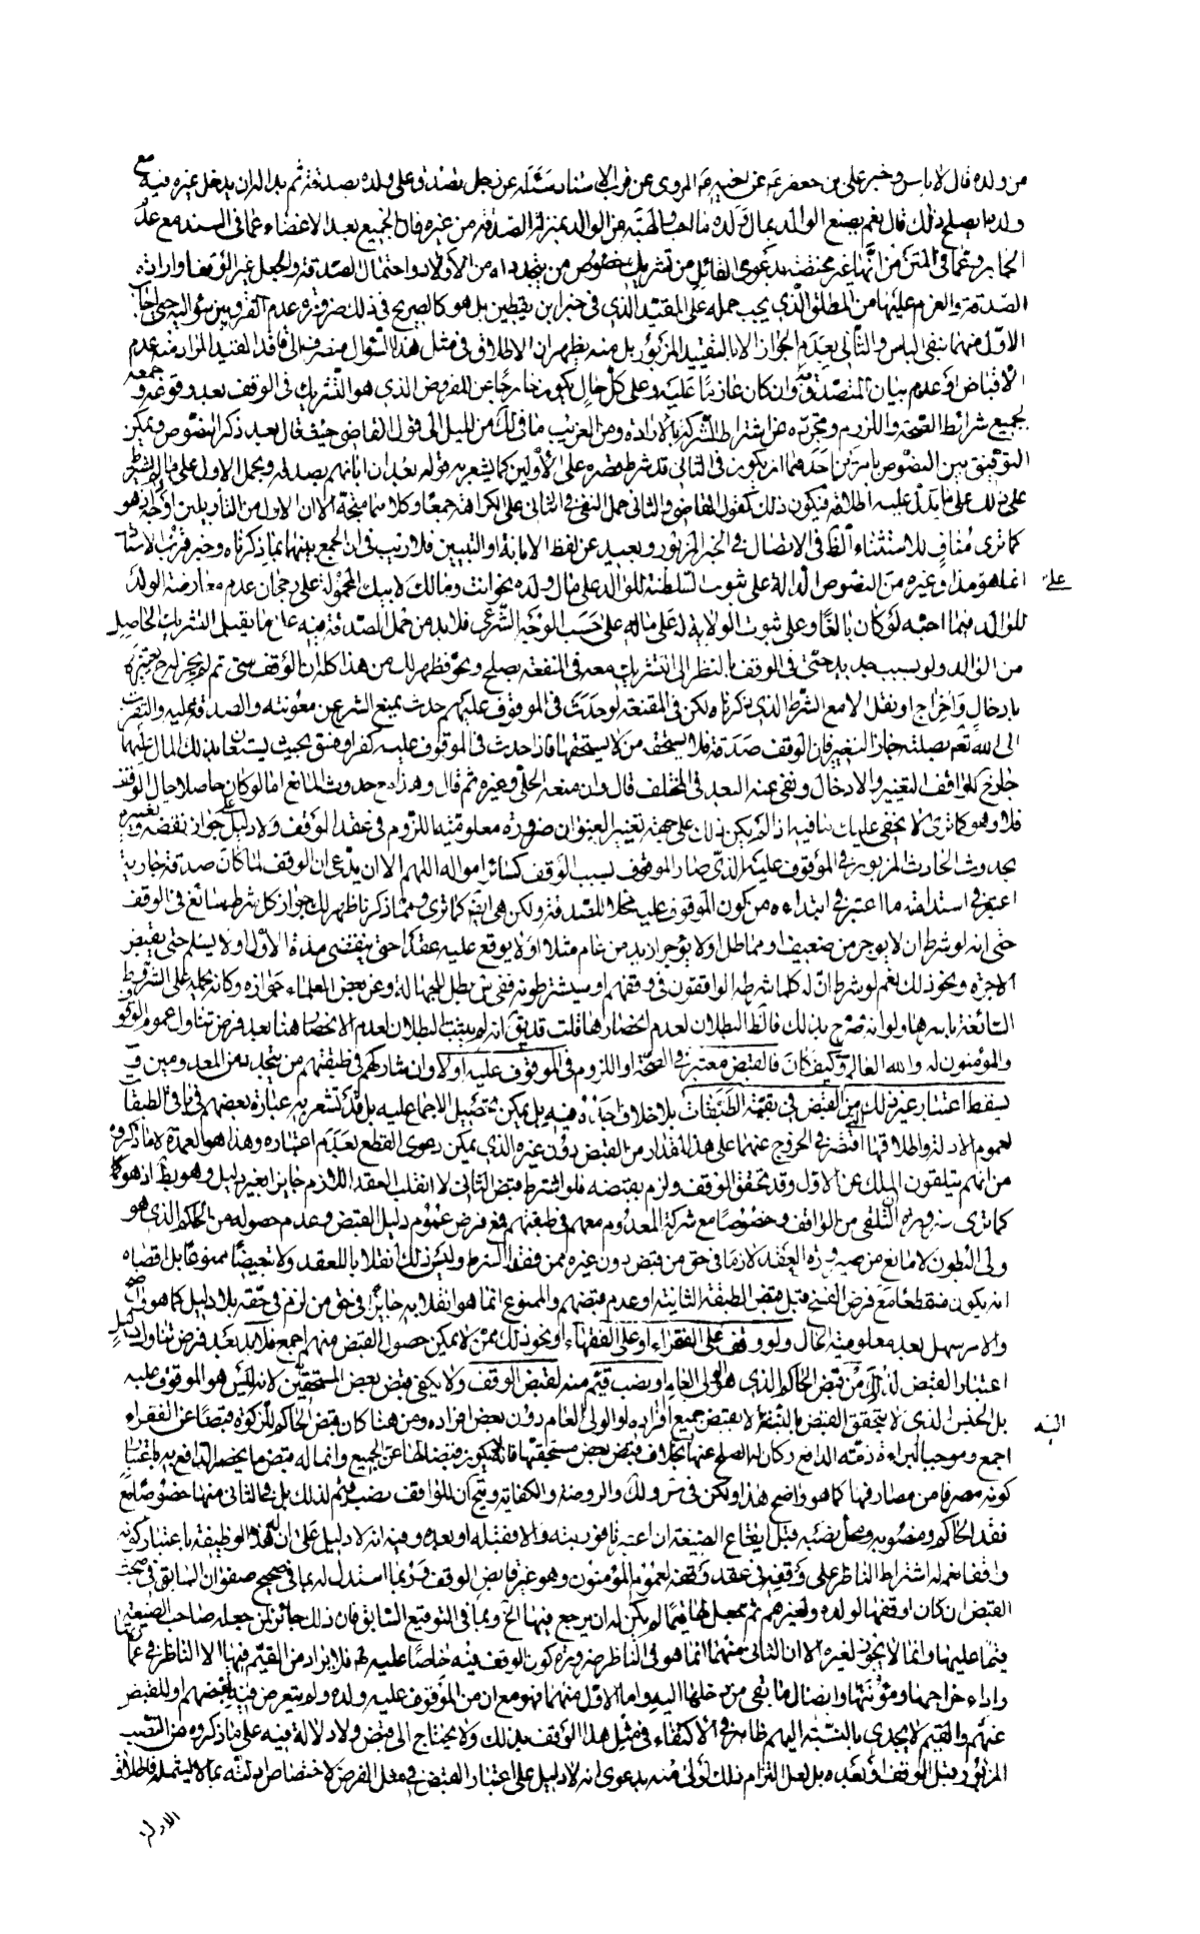 من ولده قال لا باس وخبر علي بن جعفر عن اخيه المروي عن قرب الاسناد سئله عن رجل تصدق على ولده بصدقة ثم بدا له ان يدخل غيره فيه مع
ولده ايصلح ذلك قال نعم يصنع الوالد بمال ولده ما احب والهبة من الوالد بمنزلة الصدقة من غيره فان الجميع بعد الاغضاء عما في السند مع عدم
الجابر وعما في المتن من انها غير مختصة بدعوى القائل من تشريك خصوص من يتجدد له من الاولاد واحتمال الصدقة والجعل غير الوقف او ارادة
الصدقة والعزم عليها من المطلق الذي يجب حمله على المقيد الذي في خبر ابن يقطين بل هو كالصريح في ذلك ضرورة عدم الفرق بين سؤاليه
الاول منهما بنفي الباس والثاني بعدم الجواز الا بالتقييد المزبور بل منه يظهر ان الاطلاق في مثل هذا السؤال منصرف الى فاقد القيد المراد منه عدم
الاقباض او عدم بيان الصدقة وان كان عازما عليه وعلى كل حال يكون خارجا عن المفروض الذي هو التشريك في الوقف بعد وقوعه و جمعه
لجميع شرائط الصحة واللزوم وتجرده عن اشتراط الشركة بالارادة ومن الغريب ما في لك من الميل الى قول القاضي حيث قال بعد ذكر النصوص ويمكن
التوفيق بين النصوص بامرين احدهما ان يكون في الثاني قد شرط قصره على الاولين كما يشعر به قوله بعد ان ابانهم بصدقة ويحمل الاول على
على ذلك على ما يدل عليه اطلاقه فيكون ذلك كقول القاضي والثاني حمل النفي في الثاني على الكراهة جمعا وكلاهما متجه الا ان الاول من التأويلين اوجه وهو
كما ترى مناف للاستثناء الظ في الاتصال في الخبر المزبور وبعيد عن لفظ الابانة او التبيين فلا ريب في ان الجمع بينهما بما ذكرناه وخبر قرب الاسناد
انما هو هذا وغيره من النصوص الدالة على ثبوت السلطنة للوالد على مال ولده نحو انت ومالك لابيك المحمولة على رجحان عدم معارضة الولد
على
للوالد فيما احبه لو كان بالغا وعلى ثبوت الولاية له على ماله على حسب الوجه الشرعي فلا بد من حمل الصدقة فيه على ما يقبل التشريك الحاصل
من الوالد ولو بسبب جديد حتى في الوقف بالنظر الى التشريك معه في المنفعة بصلح ونحوه فظهر لك من هذا كله ان الوقف متى تم لم يجز له تغييره
بادخال واخراج او نقل الا مع الشرط الذي ذكرناه لكن في المقنعة لو حدث في الموقوف عليهم حدث يمنع الشرع من معونته والصدقة عليه والتقرب
الى الله تعم بصلته جاز التغيير فان الوقف صدقة فلا يستحقه من لا يستحقها فاذا حدث في الموقوف عليه كفر او فسق بحيث يستعان بذلك المال عليهما
جاز ح للواقف التغيير والادخال ونفى عنه البعد في المختلف قال وان منعه الحلي وغيره ثم قال وهذا مع حدوث المانع اما لو كان حاصلا حال الوقف
فلا وهو كما ترى لا يخفى عليك ما فيه اذا لم يكن ذلك على جهة تغيير العنوان ضرورة معلومية اللزوم في عقد الوقف ولا دليل على جواز نقضه وتغييره
بحدوث الحادث المزبور في الموقوف عليه الذي صار الموقوف بسبب الوقف كسائر امواله اللهم الا ان يدعى ان الوقف لما كان صدقة جارية
اعتبر في استدامته ما اعتبر في ابتداءه من كون الموقوف عليه محلا للصدقة ولكن هي كما ترى ومما ذكرنا ظهر لك جواز كل شرط سائغ في الوقف
حتى انه لو شرط ان لا يوجر من ضعيف او مماطل او لا يؤجر ازيد من عام مثلا او لا يوقع عليه عقدا حتى ينقضي مدة الاول او لا يسلم حتى يقبض
الاجرة ونحو ذلك نعم لو شرط ان له كلما شرطه الواقفون في وقفهم او سيشترطونه ففي س بطل للجهالة وعن بعض العلماء جوازه وكانه يحمله على الشروط
السائغة باسرها ولو انه صرح بذلك فالظ البطلان لعدم انحصارها قلت قد يق انه لم يثبت البطلان لعدم الانحصار هنا بعد فرض تناول عموم الوقوف
والمؤمنون له والله العالم وكيف كان فالقبض معتبر في الصحة او اللزوم في الموقوف عليه اولا وان شاركهم في طبقتهم من يتجدد من المعدومين و
يسقط اعتبار غير ذلك من القبض في بقية الطبقات بلا خلاف اجده فيه بل يمكن تحصيل الاجماع عليه بل قد تشعر به عبارة بعضهم في باقي الطبقات
لعموم الادلة واطلاقها اقتصر في الخروج عنهما على هذا المقدار من القبض دون غيره الذي يمكن دعوى القطع بعدم اعتباره وهذا هو العمدة لا ما ذكروه
من انهم يتلقون الملك عن الاول وقد تحقق الوقف ولزم بقبضه فلو اشترط قبض الثاني لانقلب العقد اللازم جائزا بغير دليل وهو بط اذ هو كما
كما ترى ضرورة التلقي من الواقف وخصوصا مع شركة المعدوم معهم في طبقتهم فمع فرض عموم دليل القبض وعدم حصوله من الحاكم الذي هو
ولي البطون لا مانع من صيرورة العقد لازما في حق من قبض دون غيره ممن فقد الشرط وليس ذلك انقلابا للعقد ولا تبعيضا ممنوعا بل اقصاه
انه يكون منقطعا مع فرض الفسخ قبل قبض الطبقة الثانية او عدم قبضهم والممنوع انما هو انقلابه جائزا في حق من لزم في حقه بلا دليل كما هو واضح
والامر سهل بعد معلومية الحال ولو وقف على الفقراء او على الفقهاء او نحو ذلك ممن لا يمكن حصول القبض منهم اجمع فلا بد بعد فرض تناول دليل
اعتبار القبض لذلك من قبض الحاكم الذي هو الولي العام او نصب قيم منه لقبض الوقف ولا يكفي قبض بعض المستحقين لانه ليس هو الموقوف عليه
بل الجنس الذي لا يتحقق القبض بالنسبة لا بقبض جميع افراده او الولي العام دون بعض افراده ومن هنا كان قبض الحاكم للزكوة قبضا عن الفقراء
اليه
اجمع وموجبا لبراءة ذمة الدافع وكان له الصلح عنها بخلاف قبض بعض مستحقيها فانه لا يكون قبضا لها عن الجميع وانما له قبض ما يخصه الدافع به باعتبار
كونه مصرفا من مصارفها كما هو واضح هذا ولكن في س ولك والروضة والكفاية ويتجه ان للواقف نصب قيم لذلك بل في الثاني منها خصوصا مع
فقد الحاكم ومنصوبه ومحل نصبه قبل ايقاع الصيغة ان اعتبرنا فوريته والا فقبله او بعده وفيه انه لا دليل على ان له هذه الوظيفة باعتبار كونه
واقفا نعم له اشتراط الناظر على وقفه في عقد وقفه لعموم المؤمنون وهو غير قابض الوقف وربما استدل له بما في صحيح صفوان السابق في مبحث
القبض ان كان اوقفها لولده ولغيرهم ثم يجعل لها قيما لم يكن له ان يرجع فيها الخ وبما في التوقيع السابق فان ذلك جائز لمن جعله صاحب الضيعة
قيما عليها وانما لا يجوز لغيره الا ان الثاني منهما انما هو في الناظر ضرورة كون الوقف فيه خاصا عليه ع فلا يراد من القيم فيها الا الناظر في
واداء خراجها ومؤنتها وايصال ما بقي من دخلها اليه واما الاول منهما فهو مع ان من الموقوف عليه ولده ولم يتعرض فيه لقبضهم او للقبض
عنهم والقيم لا يجدي بالنسبة اليهم ظاهر في الاكتفاء في مثل هذا الوقف بذلك ولا يحتاج الى قبض ولا دلالة فيه على ما ذكروه من النصب
المزبور قبل الوقف او بعده بل لعل التزام ذلك اولى منه بدعوى انه لا دليل على اعتبار القبض في محل الفرض لاختصاص ادلته بما لا يشمله فاطلاق
الادلة